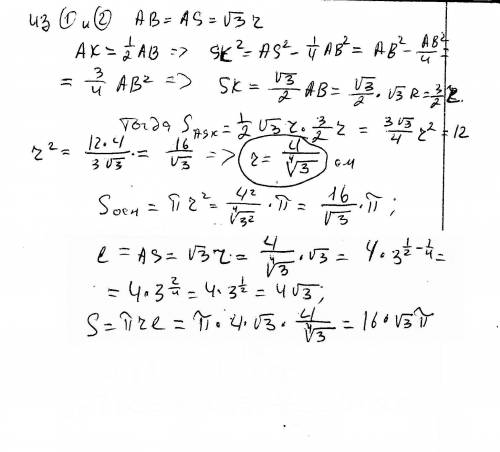 из ① и ② AB = AS = √3 r
AK = 1/2 AB => SK² = AS² - 1/4 AB² = AB² - AB²/4 =
= 3/4 AB² => SK = √3/2 AB = √3/2 · √3 R = 3/2 r.
Тогда S_ASK = 1/2 √3 r · 3/2 r = 3√3/4 r² = 12
r² = 12·4/3√3 = 16/√3 => r = 4/⁴√3 см
Sосн = πr² = 4²/⁴√3² · π = 16/√3 · π ;
l = AS = √3 r = 4/⁴√3 · √3 = 4 · 3^(1/2 - 1/4) =
= 4 · 3^(2/4) = 4 · 3^(1/2) = 4√3 ;
S = πrl = π · 4 · √3 · 4/⁴√3 = 16 · √3 π